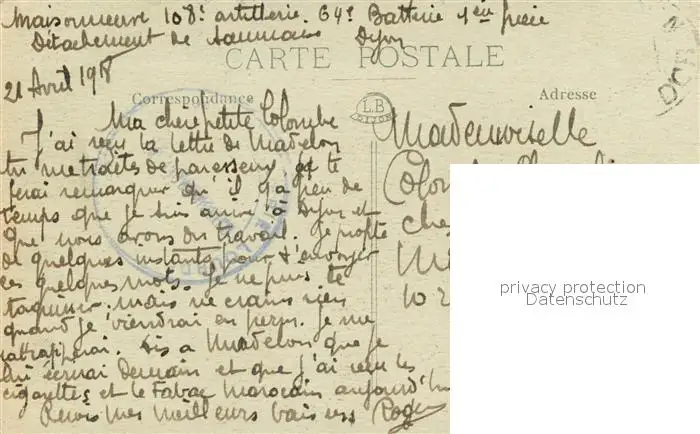 Maisonneuve 108e artillerie. 64e Batterie 1ère pièce
Détachement de Dijon
CARTE POSTALE
21 Avril 1918
Correspondance
Adresse
LB
DIJON
Ma chère petite Colombe
J'ai reçu la lettre de Madelon
tu me traites de paresseux, je te
ferai remarquer qu'il y a peu de
temps que je suis arrivé à Dijon et
que nous avons du travail. Je profite
de quelques instants pour t'envoyer
ces quelques mots. Je ne puis te
taquiner. mais ne crains rien
quand je viendrai en perm. je me
rattrapperai. Dis a Madelon que je
lui écrirai Demain et que j'ai reçu les
cigarettes et le Tabac Marocain aujourd'hui
Reçois mes meilleurs baisers Roger
Mademoiselle
che
10
privacy protection
Datenschutz